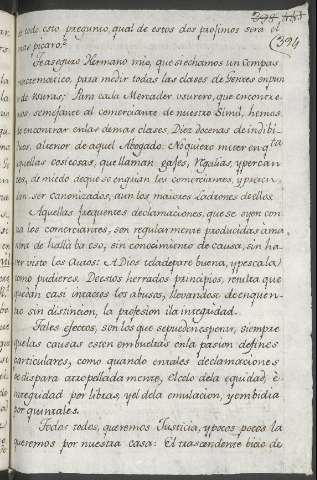 394
de todo esto pregunto, qual de estos dos proximos sera el
mas picaro?
Te aseguro Hermano mio, que si echamos un Compas
matematico, para medir todas las clases de Gentes en pun
de usuras; Para cada Mercader usurero, que encontre
mos semejante al comerciante de nuestro Simil, hemos
de encontrar en las demas clases, Diez docenas de indibi
duos, al tenor de aquel Abogado: No quiero meter en qta
aquellas cosicosas, que llaman gajes, Regalias, y percan
ces, de miedo de que se engrian los comerciantes, y preten
dan ser canonizados, aun los maiores Ladrones de ellos
Aquellas frequentes declamaciones, que se oyen con
tra los comerciantes, son regularmente producidas a ma
nera de hallà ba eso, sin conocimiento de causa, sin ha
ver visto los Autos: A Dios te la depare buena, y pescala
como pudieres. De estos herrados principios, resulta que
quedan casi intactos los abusos, llevandose de enquen
tro sin distincion, la profesion i la integridad.
Tales efectos, son los que se pueden esperar, siempre
que las causas esten embueltas en la pasion de fines
particulares, como quando en tales declamaciones
se dispara atropelladamente, el celo de la equidad, è
integridad por libras, y el de la emulacion, y embidia
por quintales.
Todos todos, queremos Justicia, y pocos pocos la
queremos por nuestra casa: El trascendente bicio de